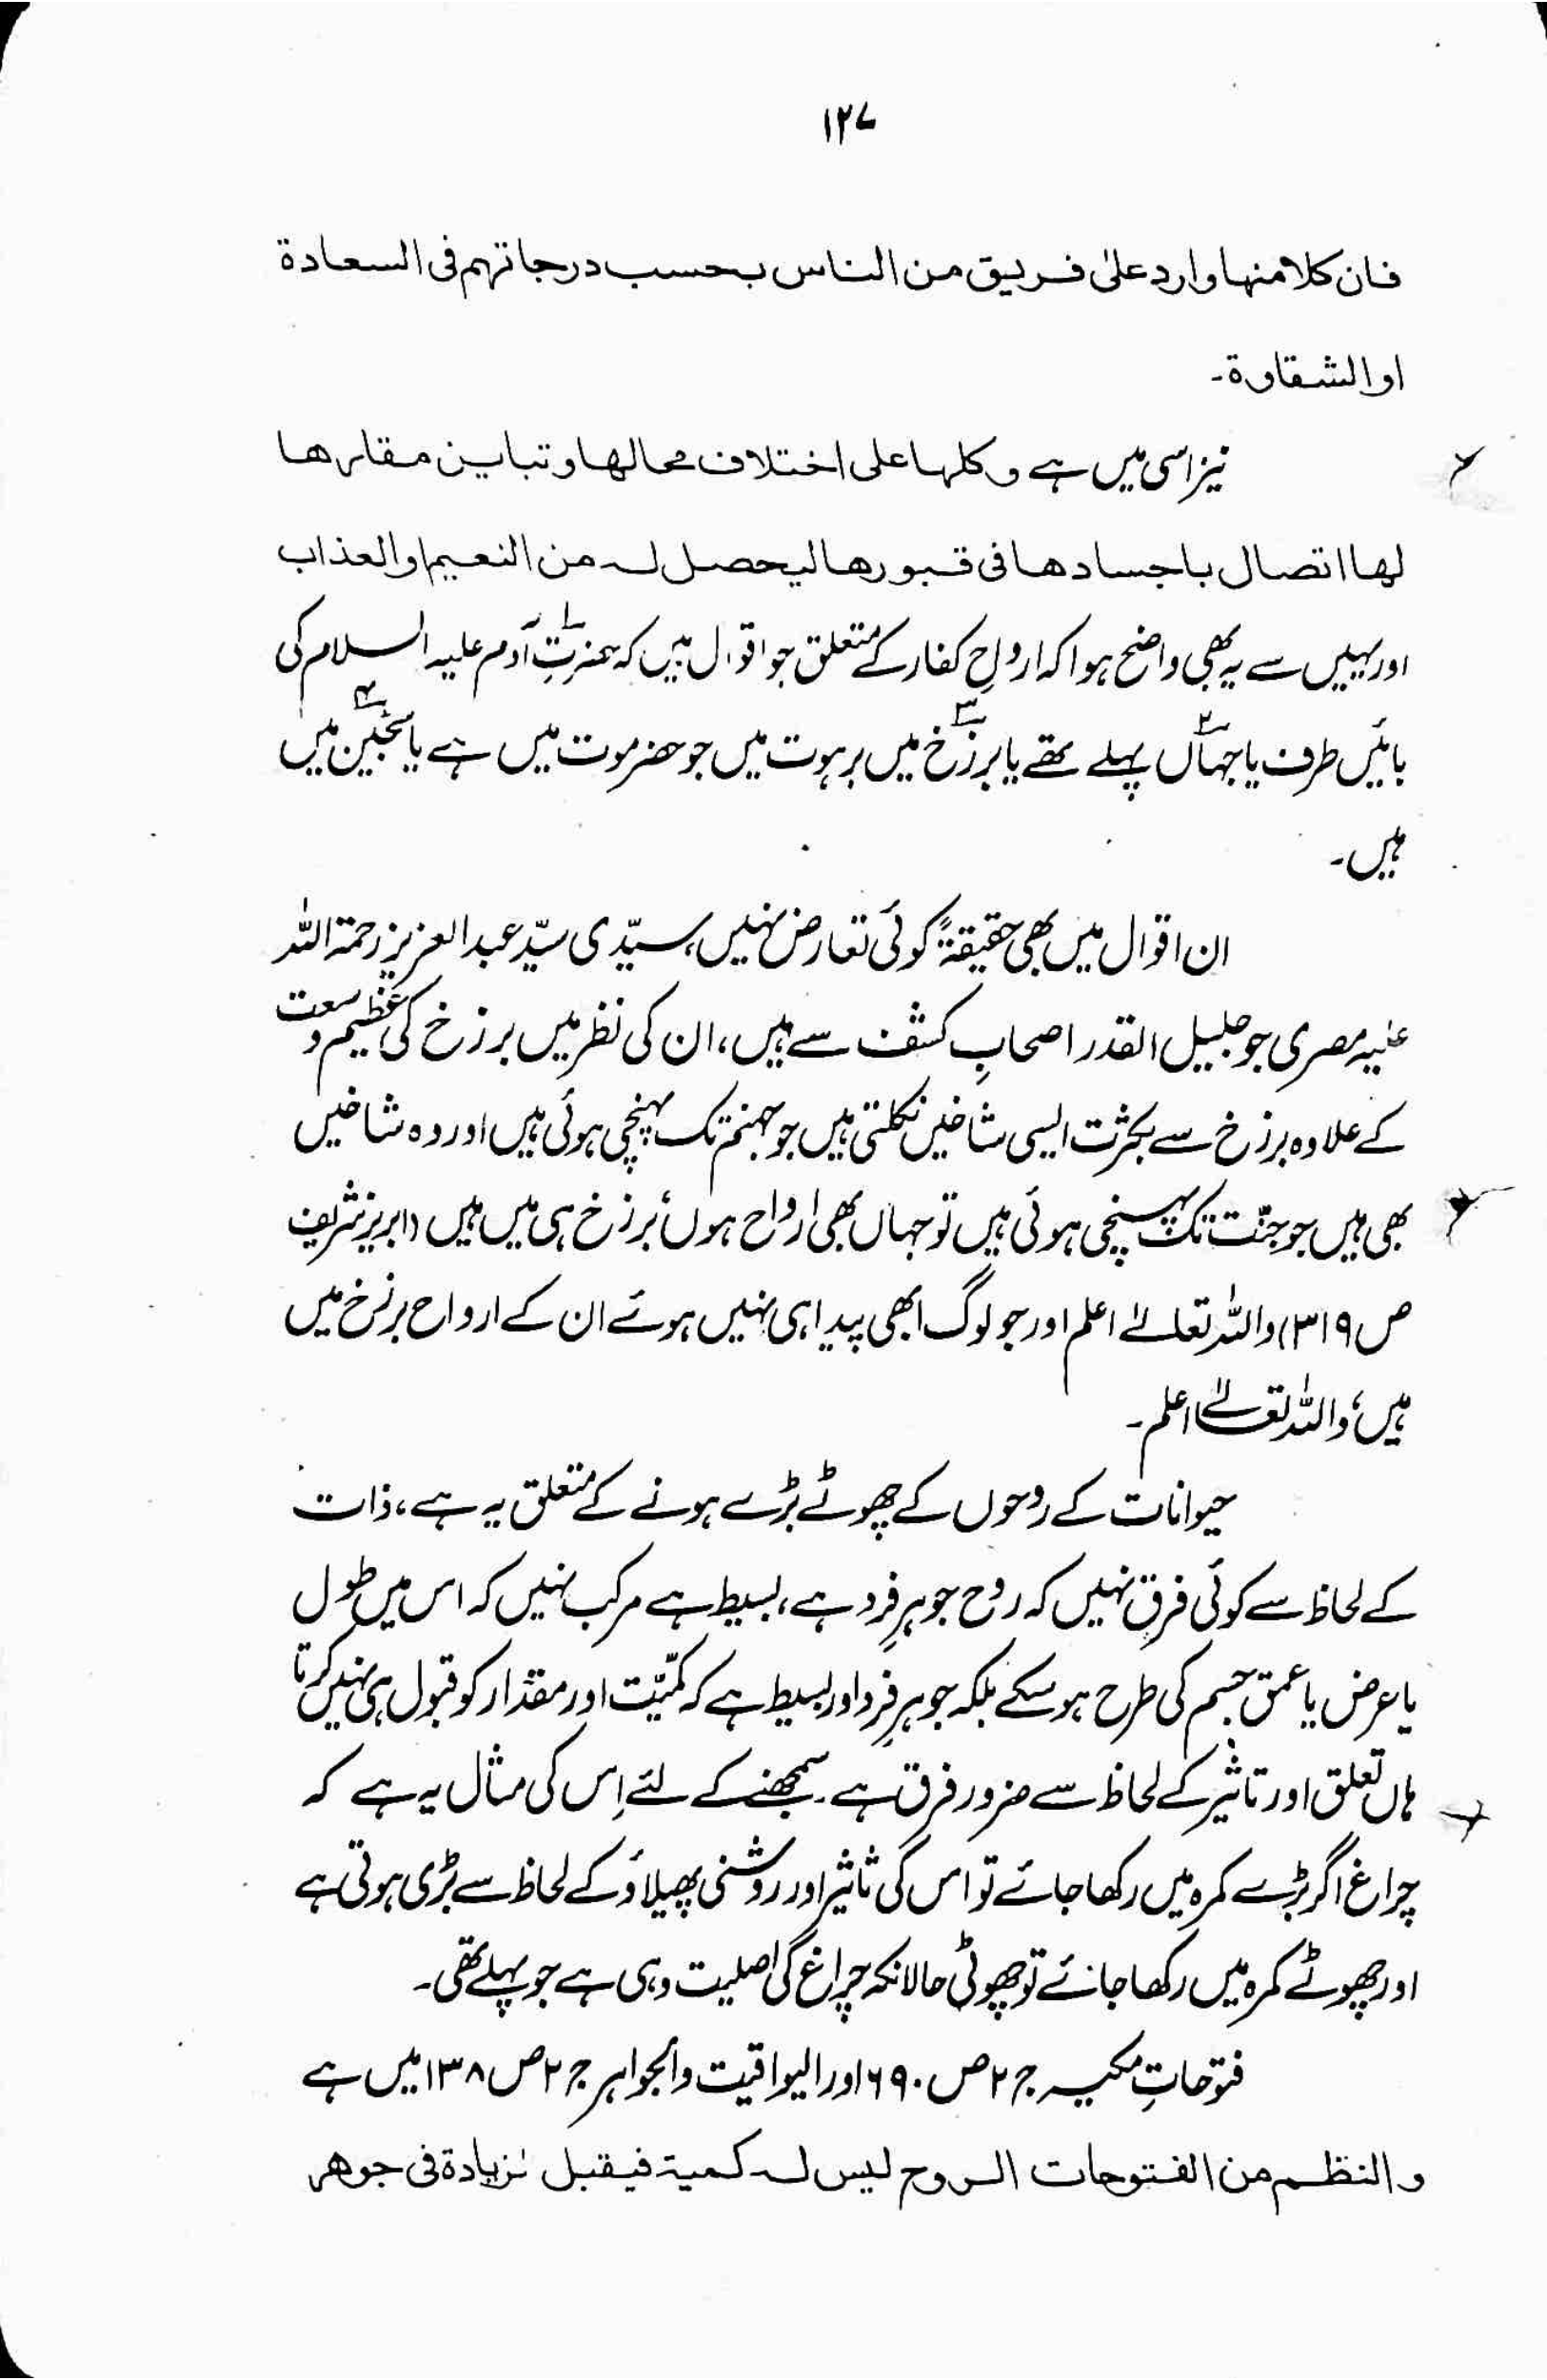 ۱۲۷
فان کلا منها وارد علیٰ فریق من الناس بحسب درجاتهم فی السعادة
او الشقاوة۔
نیز اسی میں ہے و کلها علی اختلاف محالها و تباین مقارها
لها اتصال باجسادها فی قبورها لیحصل له من النعیم او العذاب
اور یہیں سے یہ بھی واضح ہوا کہ ارواحِ کفار کے متعلق جو اقوال ہیں کہ حضرتِ آدم علیہ السلام کی
بائیں طرف یا جہاں پہلے تھے یا برزخ میں برہوت میں جو حضرموت میں ہے یا سجّین میں
ہیں۔
ان اقوال میں بھی حقیقۃً کوئی تعارض نہیں، سیّدی سیّد عبدالعزیز رحمۃ اللہ
علیہ مصری جو جلیل القدر اصحابِ کشف سے ہیں، ان کی نظر میں برزخ کی عظیم وسعت
کے علاوہ برزخ سے بکثرت ایسی شاخیں نکلتی ہیں جو جہنم تک پہنچی ہوئی ہیں اور وہ شاخیں
بھی ہیں جو جنّت تک پہنچی ہوئی ہیں تو جہاں بھی ارواح ہوں، برزخ ہی میں ہیں (ابریز شریف
ص ۳۱۹) واللہ تعالےٰ اعلم اور جو لوگ ابھی پیدا ہی نہیں ہوئے ان کے ارواح برزخ میں
ہیں، واللہ تعالےٰ اعلم۔
حیوانات کے روحوں کے چھوٹے بڑے ہونے کے متعلق یہ ہے، ذات
کے لحاظ سے کوئی فرق نہیں کہ روح جوہرِ فرد ہے، بسیط ہے مرکب نہیں کہ اس میں طول
یا عرض یا عمق جسم کی طرح ہو سکے بلکہ جوہرِ فرد اور بسیط ہے کہ کمّیّت اور مقدار کو قبول ہی نہیں کرتا
ہاں تعلق اور تاثیر کے لحاظ سے ضرور فرق ہے۔ سمجھنے کے لئے اِس کی مثال یہ ہے کہ
چراغ اگر بڑے کمرہ میں رکھا جائے تو اس کی تاثیر اور روشنی پھیلاؤ کے لحاظ سے بڑی ہوتی ہے
اور چھوٹے کمرہ میں رکھا جائے تو چھوٹی حالانکہ چراغ کی اصلیت وہی ہے جو پہلے تھی۔
فتوحاتِ مکیہ ج ۲ ص ۶۹۰ اور الیواقیت والجواہر ج ۲ ص ۱۳۸ میں ہے
و النظم من الفتوحات الروح لیس له کمیة فیقبل الزیادة فی جوهر